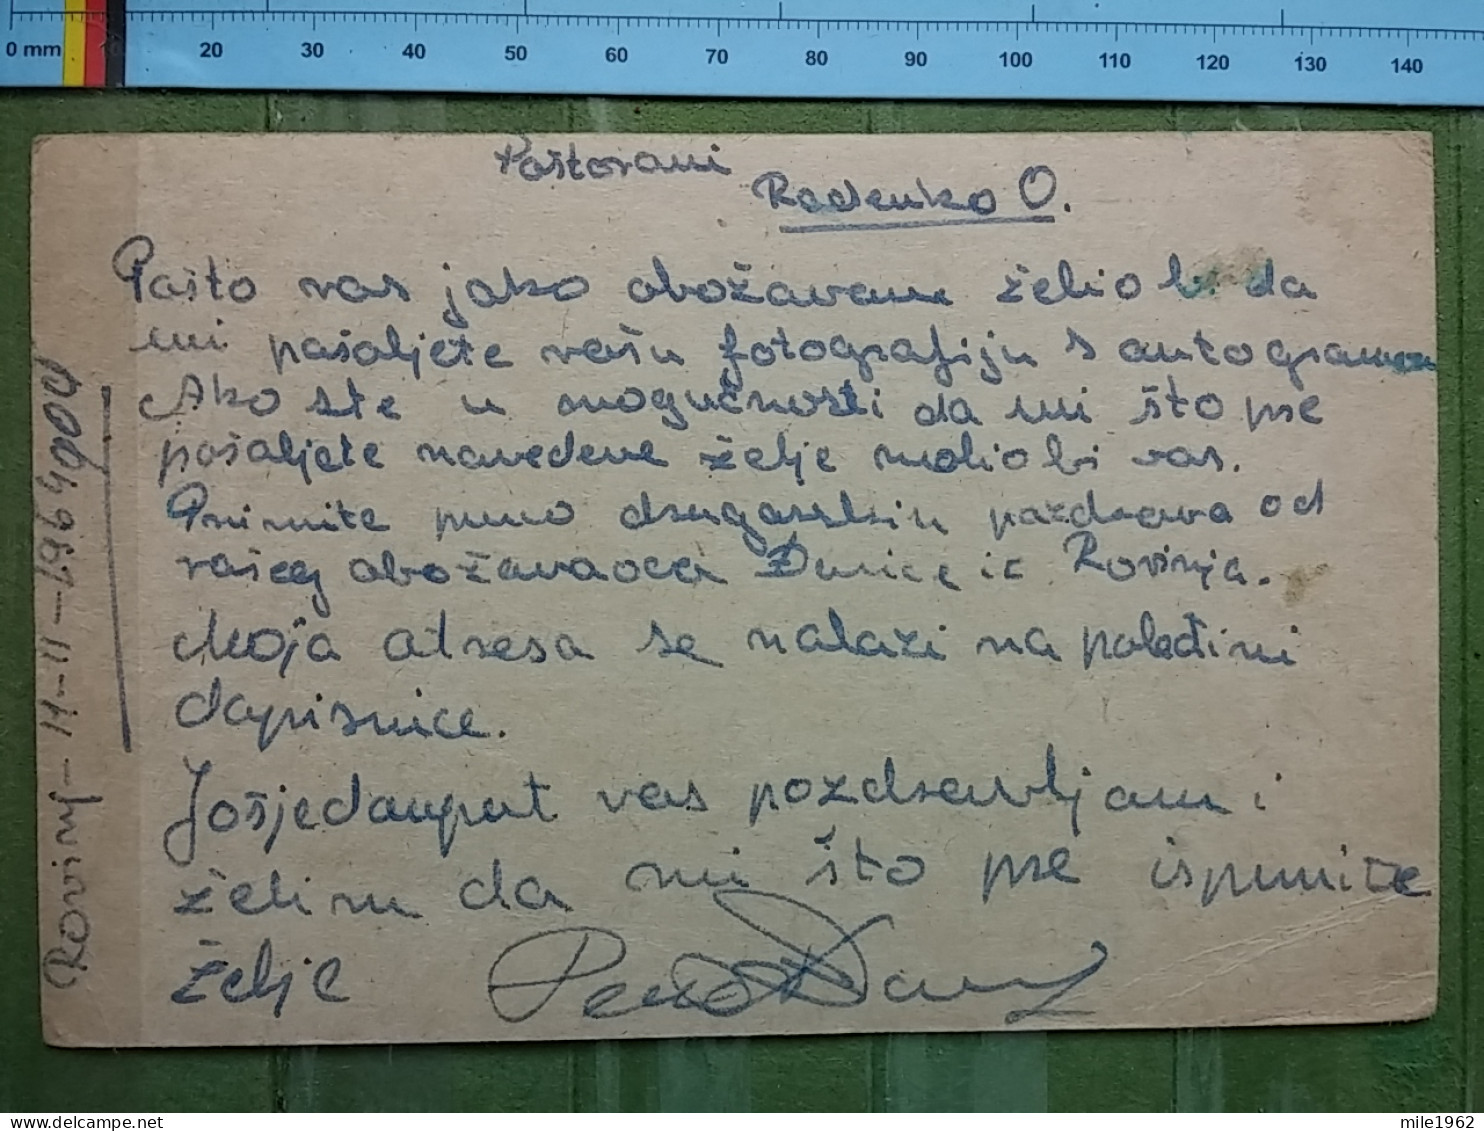 0 mm 10 20 30 40 50 60 70 80 90 100 110 120 130 140
Poštovani
Radenko O.
Pošto vas jako obožavam želio bi da
mi pošaljete vašu fotografiju s autogramom
Ako ste u mogućnosti da mi što pre
pošaljete navedene želje molio bi vas.
Primite puno drugarskih pozdrava od
vašeg obožavaoca iz Rovinja.
Moja adresa se nalazi na poleđini
dopisnice.
Još jedanput vas pozdravljam i
želim da mi što pre ispunite
želje
Rovinj - 11-11-1964 god
mile1962